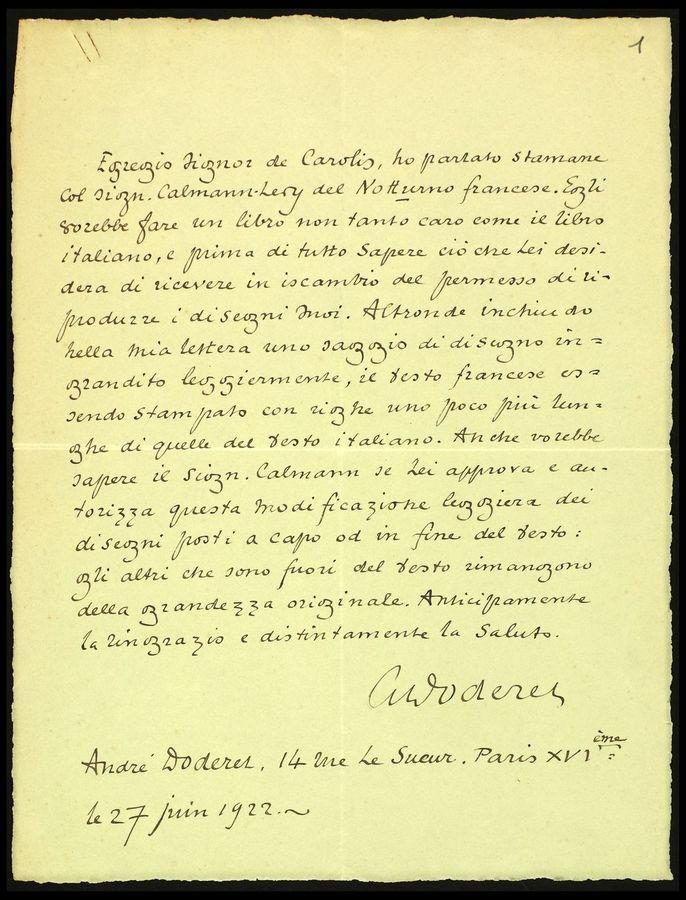 1
Egregio Signor de Carolis, ho parlato stamane
col Sign. Calmann-Levy del Notturno francese. Egli
vorebbe fare un libro non tanto caro come il libro
italiano, e prima di tutto sapere ciò che Lei desi-
dera di ricevere in iscambio del permesso di ri-
produrre i disegni suoi. Altronde inchiudo
nella mia lettera uno saggio di disegno in=
grandito leggiermente, il testo francese es=
sendo stampato con righe uno poco più lun=
ghe di quelle del testo italiano. Anche vorebbe
sapere il Sign. Calmann se Lei approva e au-
torizza questa modificazione leggiera dei
disegni posti a capo od in fine del testo:
gli altri che sono fuori del testo rimangono
della grandezza originale. Anticipamente
la ringrazio e distintamente la saluto.
ADoderet
André Doderet, 14 rue Le Sueur. Paris XVIème
le 27 juin 1922.~